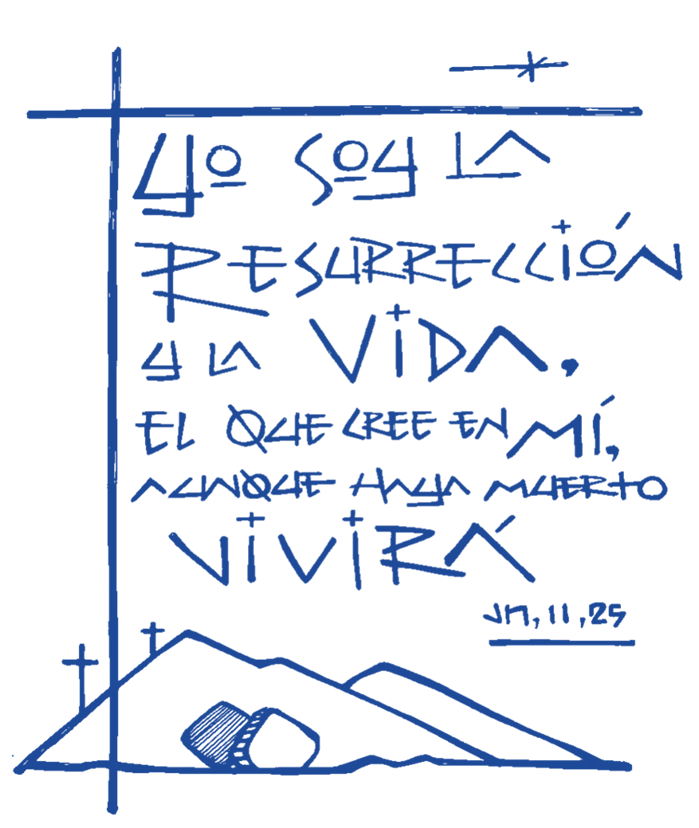 YO SOY LA
RESURRECCIÓN
Y LA VIDA,
EL QUE CREE EN MÍ,
AUNQUE HAYA MUERTO
VIVIRÁ
JN, 11, 25